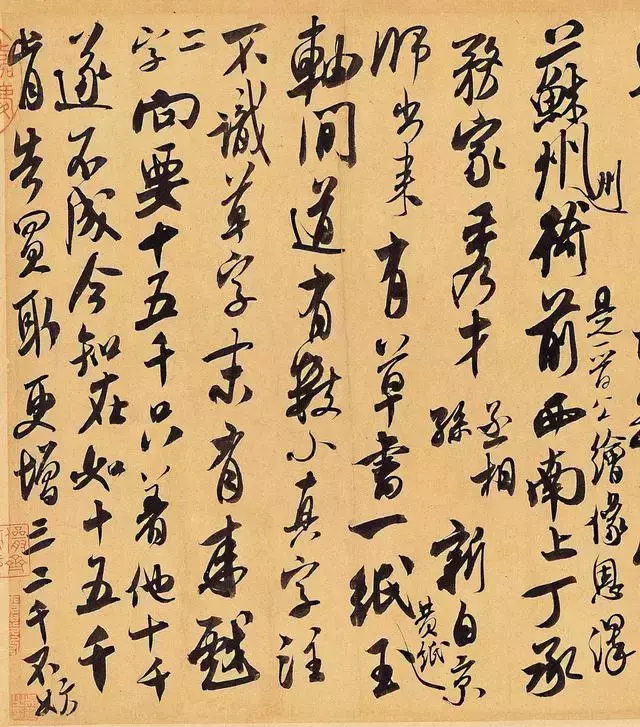 是晉公繪像恩澤
蘇州州衙前西南上丁承
務家秀才丞相孫新自京
師出來有草書一紙黃紙玉
軸間道有數小真字注
不識草字末有來戲
二字向要十五千只著他十千
遂不成今知在如十五千
肯告買取更增三二千不妨